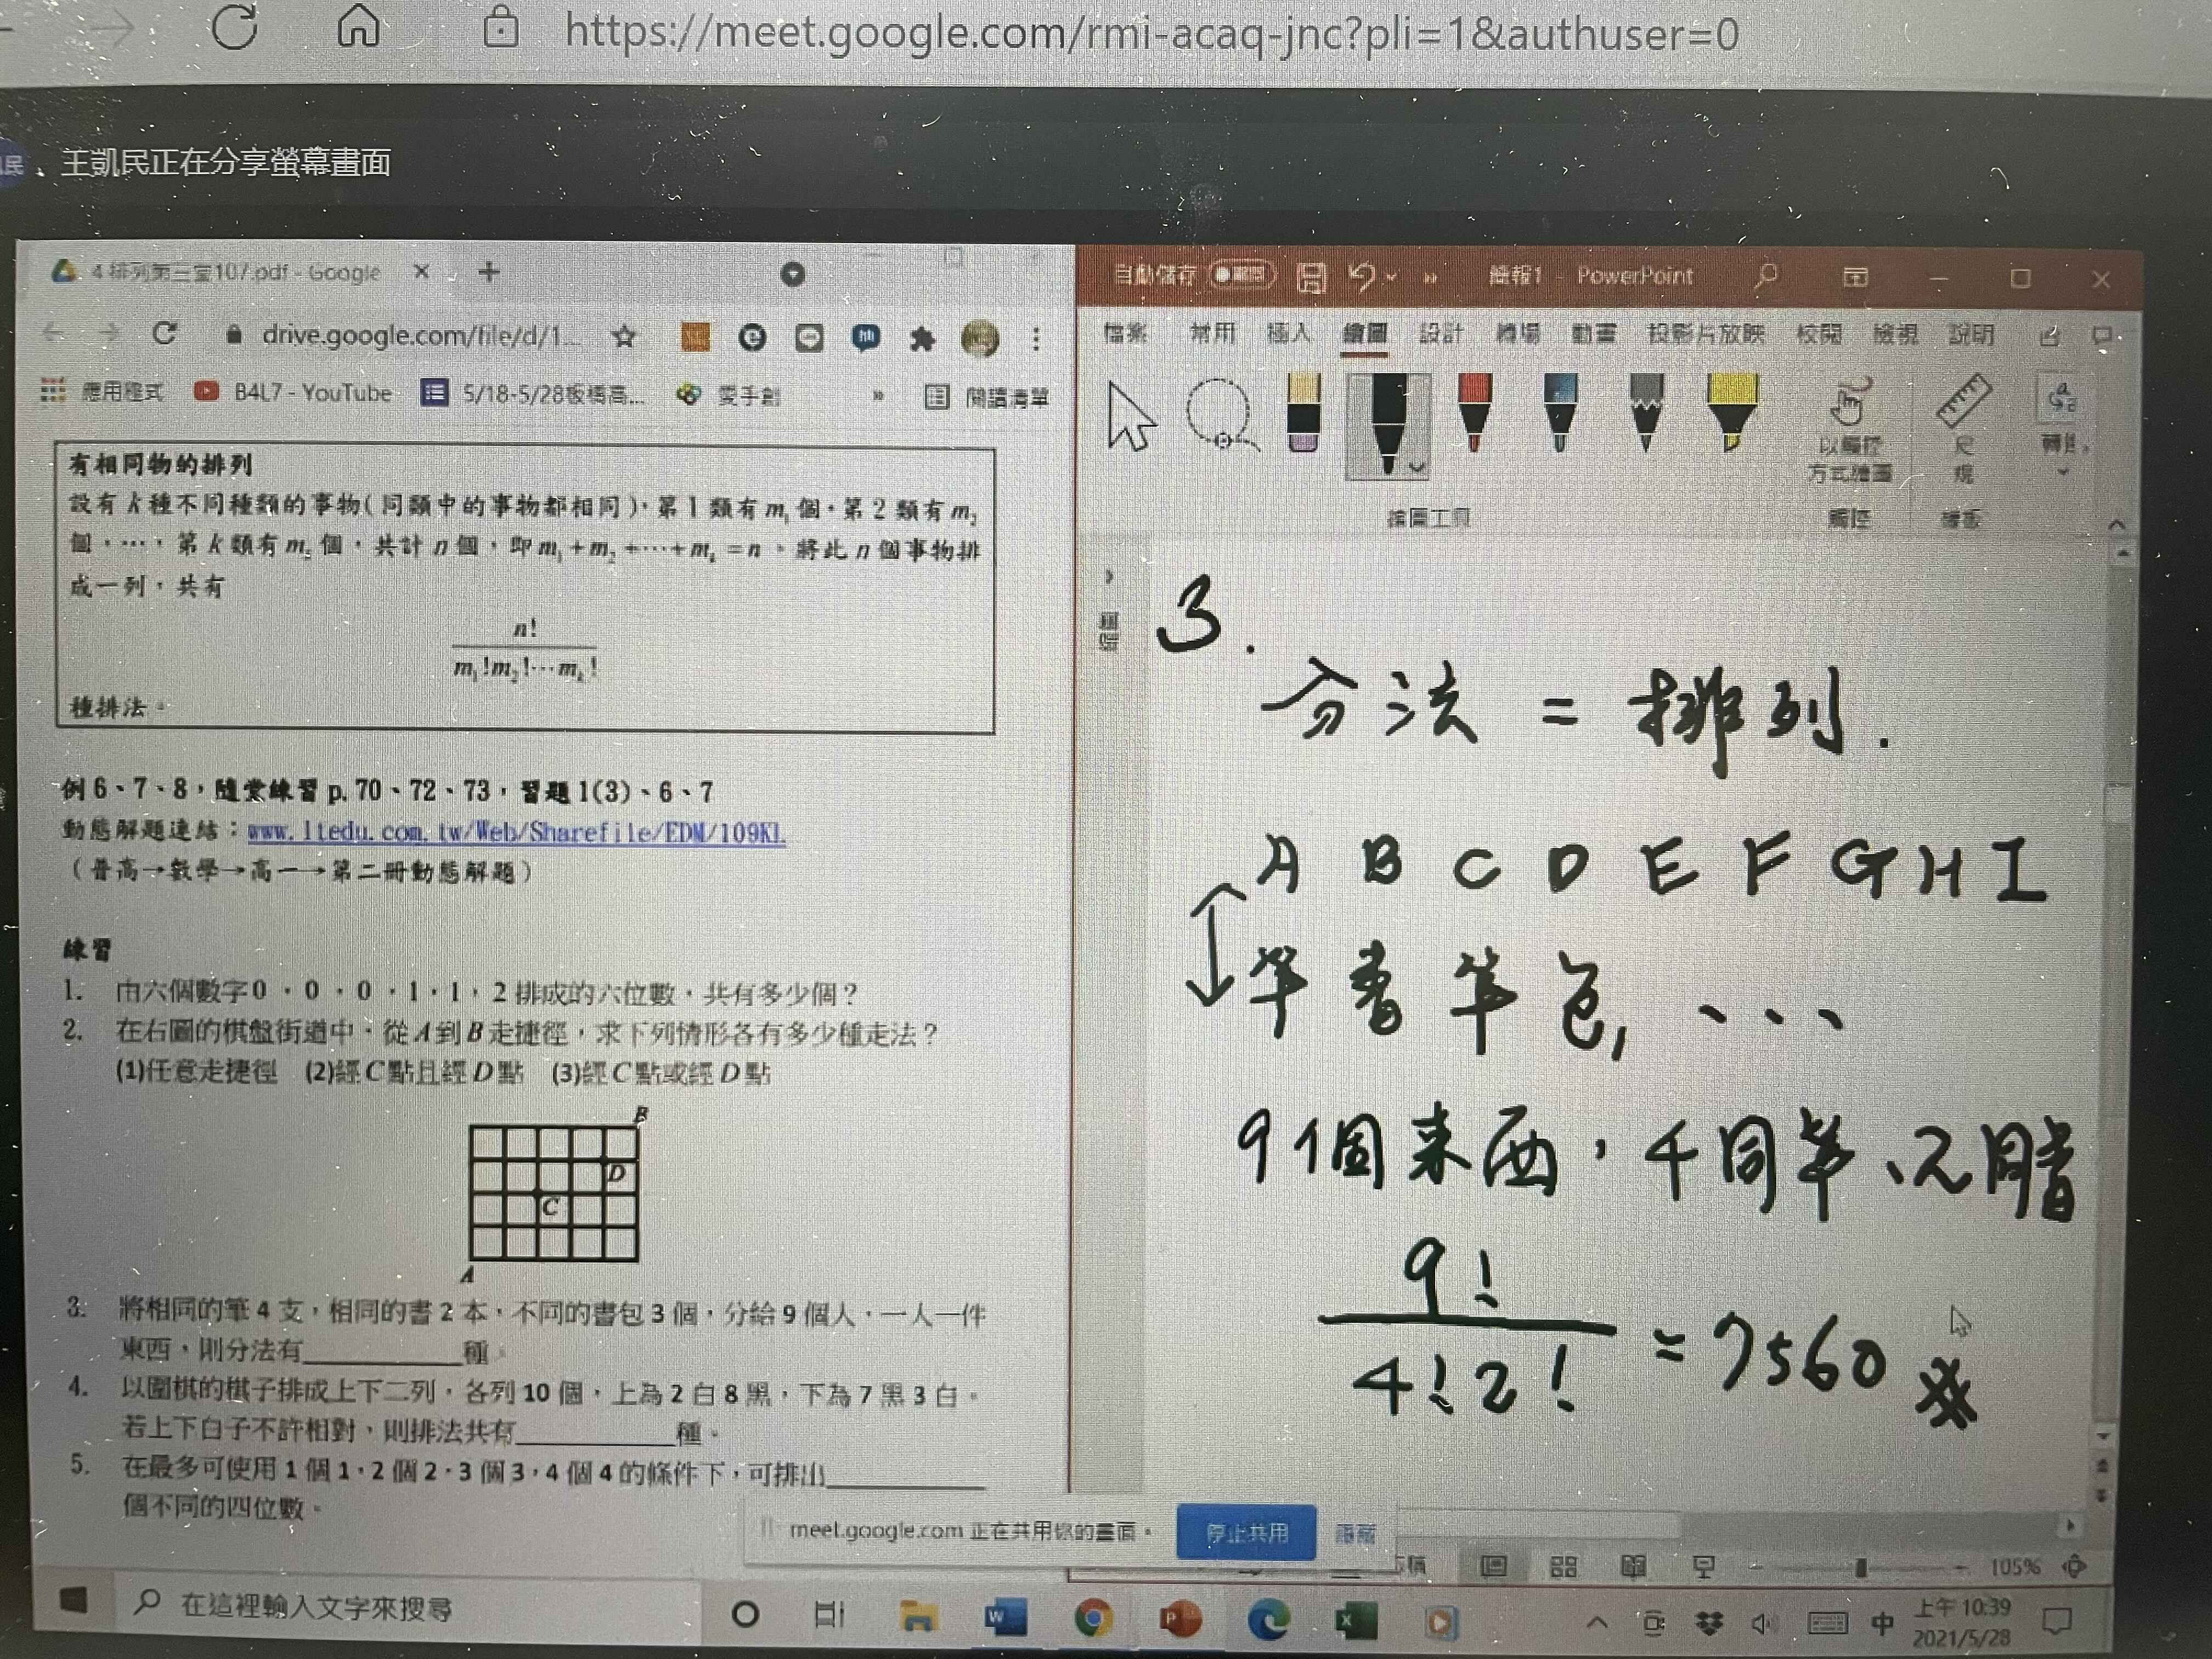 https://meet.google.com/rmi-acaq-jnc?pli=1&authuser=0
王凱民正在分享螢幕畫面
4 排列第三堂107.pdf - Google
drive.google.com/file/d/1...
應用程式 B4L7 - YouTube 5/18-5/28板橋高... 愛手創 » 閱讀清單
有相同物的排列
設有 k 種不同種類的事物(同類中的事物都相同),第 1 類有 m₁ 個,第 2 類有 m₂
個,…,第 k 類有 mₖ 個,共計 n 個,即 m₁+m₂+⋯+mₖ=n。將此 n 個事物排
成一列,共有
n!
m₁!m₂!⋯mₖ!
種排法。
例 6、7、8,隨堂練習 p. 70、72、73,習題 1(3)、6、7
動態解題連結:www.ltedu.com.tw/Web/Sharefile/EDM/109KL
(普高→數學→高一→第二冊動態解題)
練習
1. 由六個數字0,0,0,1,1,2 排成的六位數,共有多少個?
2. 在右圖的棋盤街道中,從 A 到 B 走捷徑,求下列情形各有多少種走法?
(1)任意走捷徑 (2)經 C 點且經 D 點 (3)經 C 點或經 D 點
B
D
C
A
3. 將相同的筆 4 支,相同的書 2 本,不同的書包 3 個,分給 9 個人,一人一件
東西,則分法有__________種。
4. 以圍棋的棋子排成上下二列,各列 10 個,上為 2 白 8 黑,下為 7 黑 3 白。
若上下白子不許相對,則排法共有__________種。
5. 在最多可使用 1 個 1,2 個 2,3 個 3,4 個 4 的條件下,可排出__________
個不同的四位數。
meet.google.com 正在共用你的畫面。 停止共用 隱藏
自動儲存 關閉 簡報1 - PowerPoint
檔案 常用 插入 繪圖 設計 轉場 動畫 投影片放映 校閱 檢視 說明
以觸控
方式繪圖
尺
規
繪圖工具 觸控
3.
分法 = 排列.
A B C D E F G H I
筆 書 筆 包, ...
9個東西,4同筆、2同書
9!
4!2!
= 7560
105%
在這裡輸入文字來搜尋
中
上午 10:39
2021/5/28